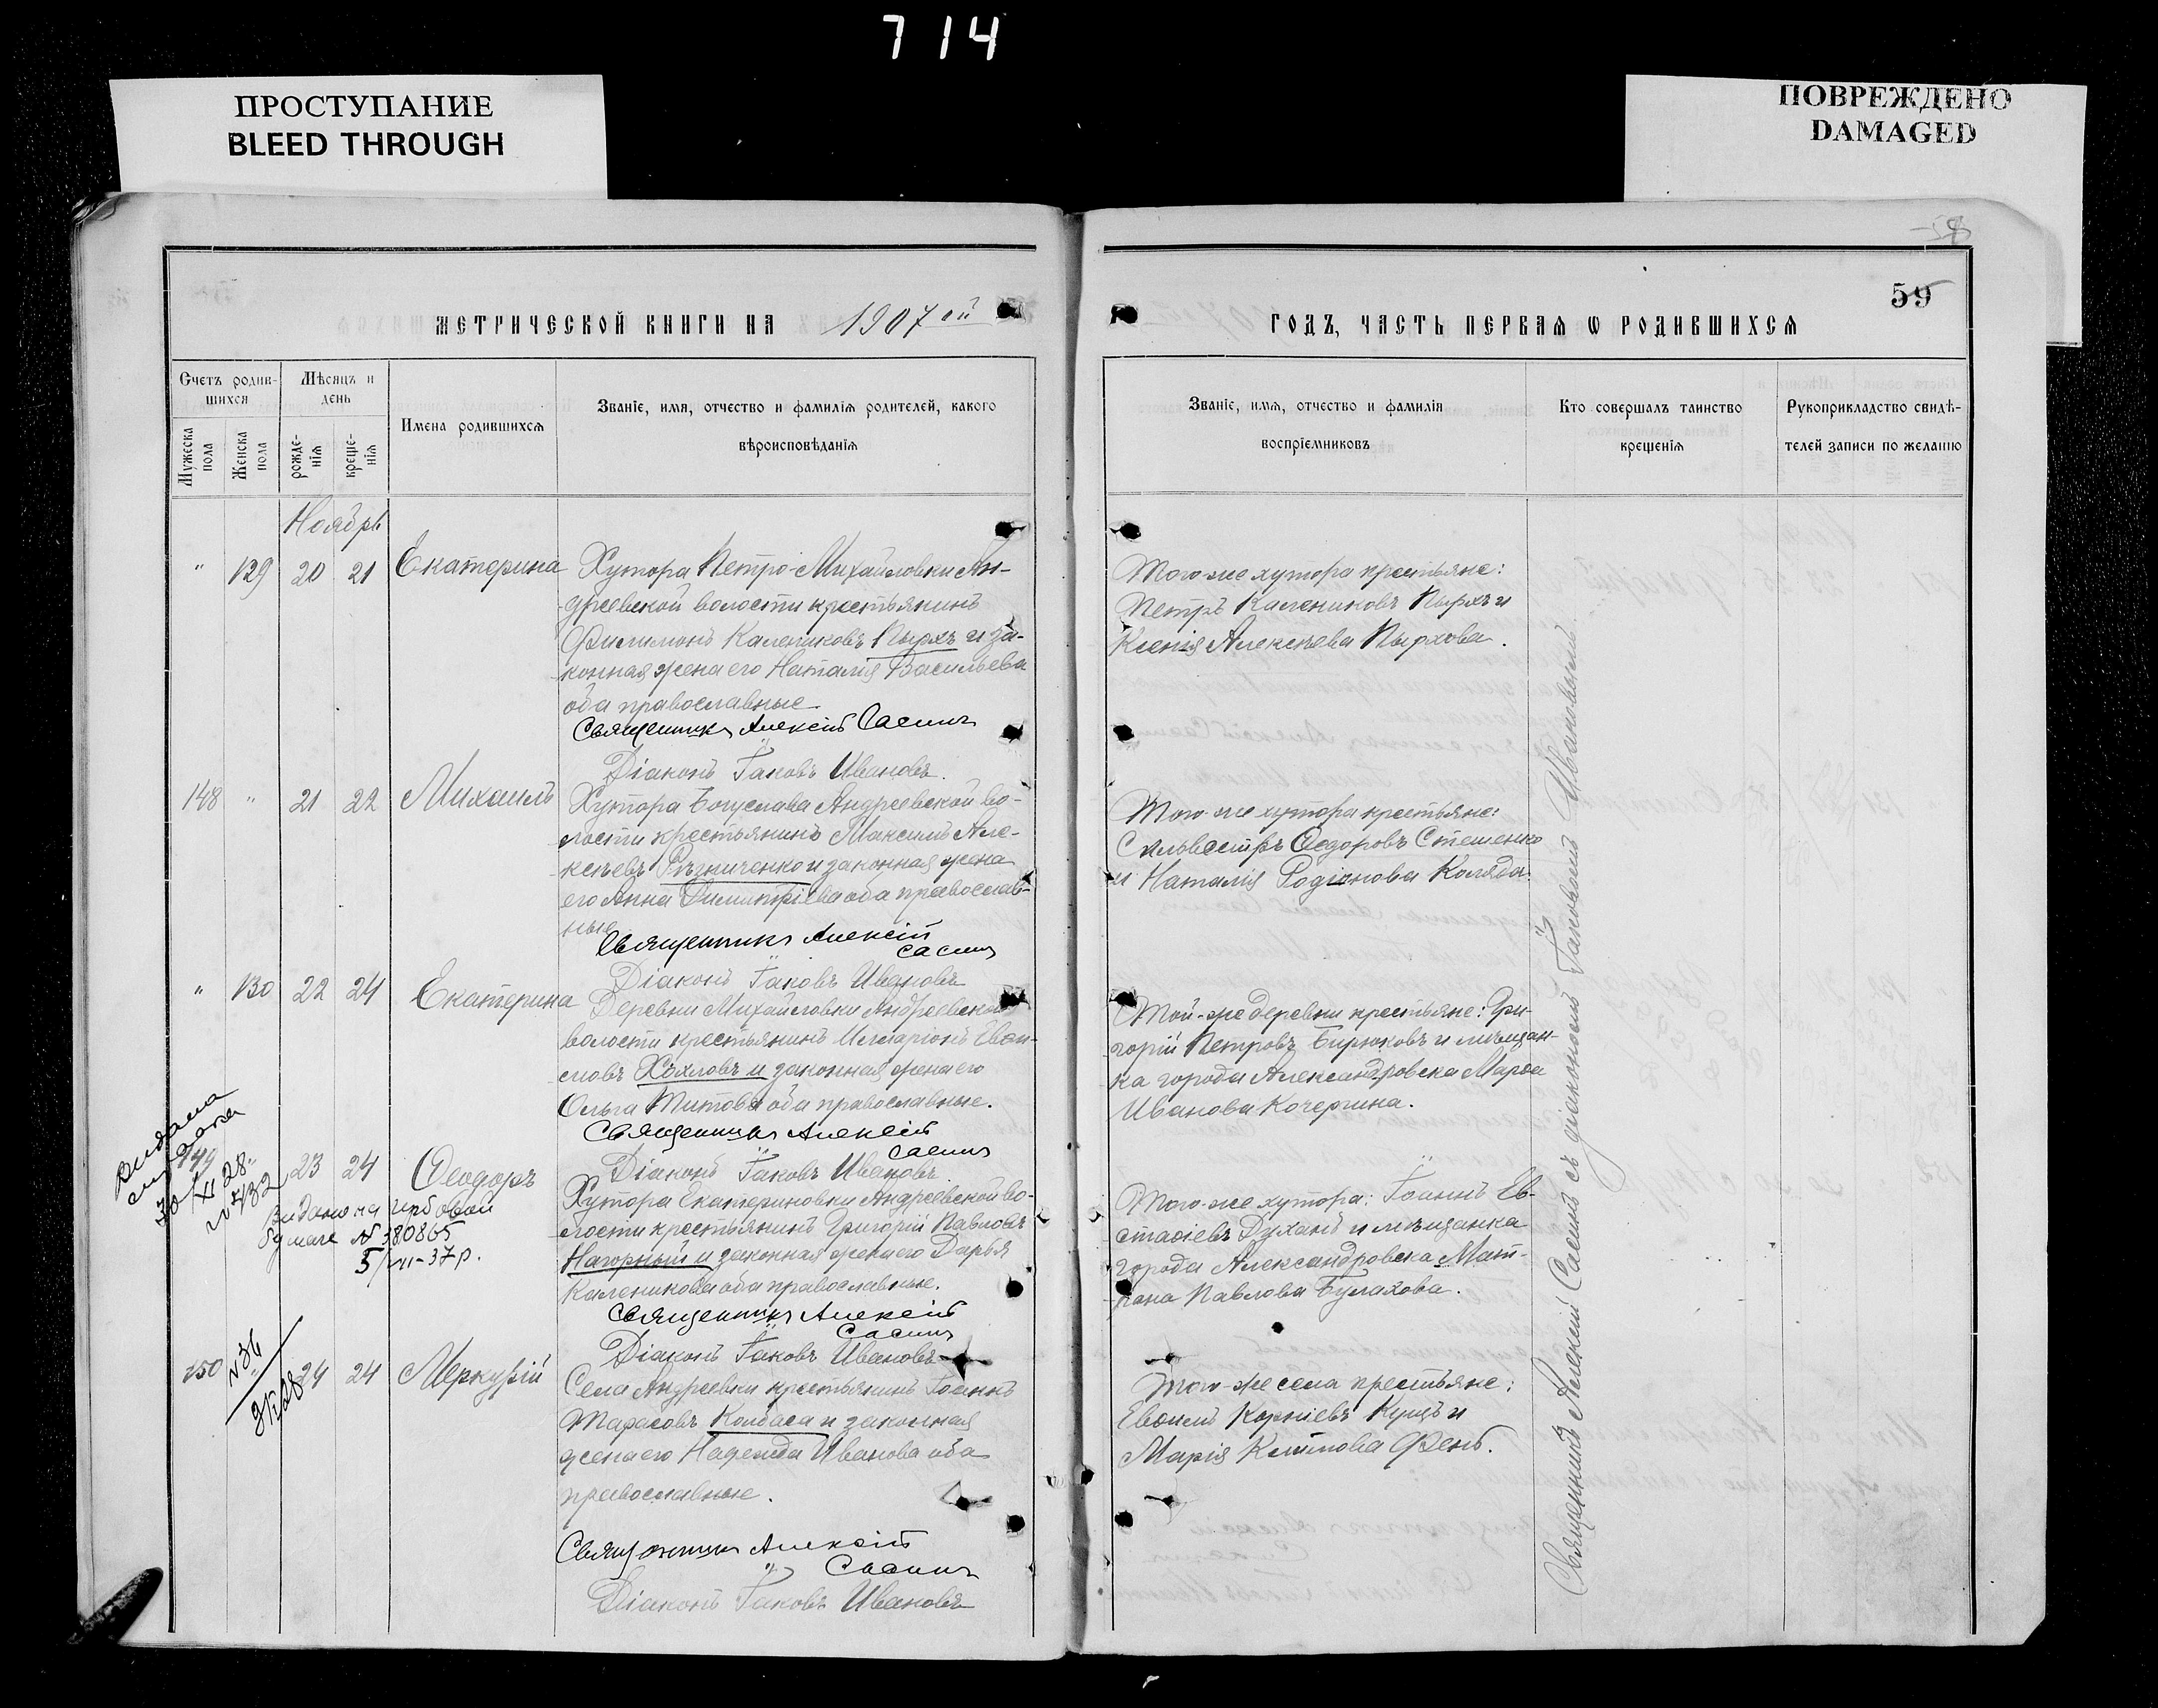 714
ПРОСТУПАНИЕ
BLEED THROUGH
ПОВРЕЖДЕНО
DAMAGED
59
МЕТРИЧЕСКОЙ КНИГИ НА 1907ой
ГОДЪ, ЧАСТЬ ПЕРВАЯ Ѡ РОДИВШИХСЯ
Счетъ родив-
шихся
Мужеска
пола
Женска
пола
Мѣсяцъ и
день
рожде-
нія
креще-
нія
Имена родившихся
Званіе, имя, отчество и фамилія родителей, какого
вѣроисповѣданія
Званіе, имя, отчество и фамилія
воспріемниковъ
Кто совершалъ таинство
крещенія
Рукоприкладство свидѣ-
телей записи по желанію
Ноябрь
" 129 20 21 Екатерина
Хутора Петро-Михайловки Ан-
дреевской волости крестьянинъ
Филимонъ Калениковъ Пырхъ и за-
конная жена его Наталія Васильева
оба православные
Священникъ Алексій Сасинъ
Діаконъ Іаковъ Ивановъ.
Того-же хутора крестьяне:
Петръ Калениковъ Пырхъ и
Ксенія Алексѣева Пырхова.
148 " 21 22 Михаилъ
Хутора Богуслава Андреевской во-
лости крестьянинъ Максимъ Але-
ксѣевъ Рѣзниченко и законная жена
его Анна Димитріева оба православ-
ные
Священникъ Алексій
Сасинъ
Діаконъ Іаковъ Ивановъ
Того-же хутора крестьяне:
Сильвестръ Ѳедоровъ Стешенко
и Наталія Родіонова Коляда.
" 130 22 24 Екатерина
Деревни Михайловки Андреевской
волости крестьянинъ Иларіонъ Евѳи-
міовъ Хохловъ и законная жена его
Ольга Титова оба православные.
Священникъ Алексій
Сасинъ
Діаконъ Іаковъ Ивановъ.
Той-же деревни крестьяне: Гри-
горій Петровъ Бирюковъ и мѣщан-
ка города Александровска Марѳа
Иванова Кочергина.
149 " 23 24 Ѳеодоръ
Хутора Екатериновки Андреевской во-
лости крестьянинъ Григорій Павловъ
Нагорный и законная жена его Дарья
Каленикова оба православные.
Священникъ Алексій
Сасинъ
Діаконъ Іаковъ Ивановъ
Того-же хутора: Іоаннъ Ев-
стаѳіевъ Духанъ и мѣщанка
города Александровска Мат-
рона Павлова Булахова.
30/XI 28
№ 432
Видано на гербовой
бумаге № 380865
5/VII-37р.
150 24 24 Меркурій
Села Андреевки крестьянинъ Іоаннъ
Тарасовъ Колбаса и законная
жена его Надежда Иванова оба
православные.
Священникъ Алексій
Сасинъ
Діаконъ Іаковъ Ивановъ
Того-же села крестьяне:
Евѳимъ Корніевъ Куцъ и
Марія Климова Фень.
№ 36
Священникъ Алексій Сасинъ съ діакономъ Іаковомъ Ивановымъ